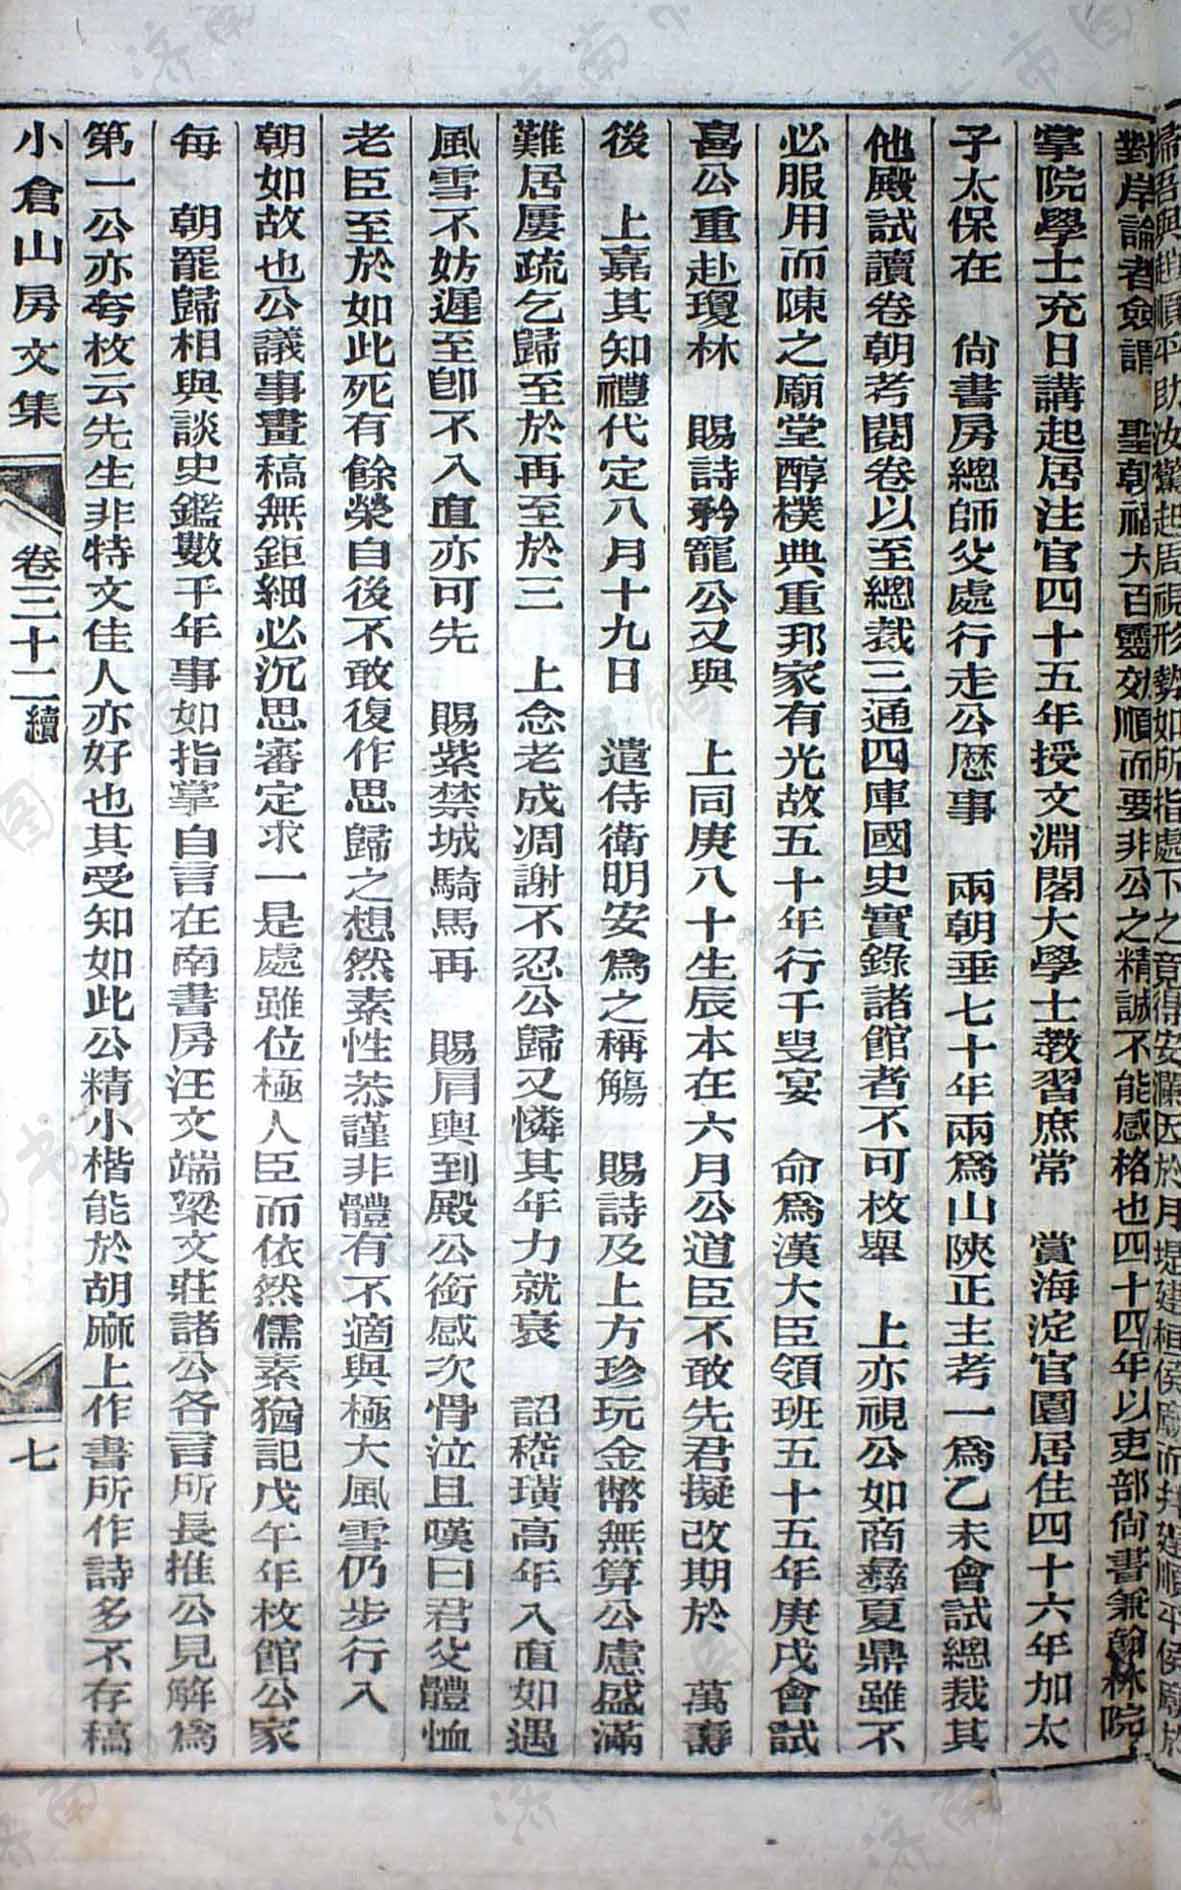 歸吾與趙順平助汝驚起周視形勢如所指處下之竟得安瀾因於月堤建桓侯廟而并建順平侯廟於
對岸論者僉謂　聖朝福大百靈效順而要非公之精誠不能感格也四十四年以吏部尚書兼翰林院
掌院學士充日講起居注官四十五年授文淵閣大學士教習庶常　賞海淀官園居住四十六年加太
子太保在　尚書房總師父處行走公歷事　兩朝垂七十年兩為山陝正主考一為乙未會試總裁其
他殿試讀卷朝考閱卷以至總裁三通四庫國史實錄諸館者不可枚舉　上亦視公如商彝夏鼎雖不
必服用而陳之廟堂醇樸典重邦家有光故五十年行千叟宴　命為漢大臣領班五十五年庚戌會試
喜公重赴瓊林　賜詩矜寵公又與　上同庚八十生辰本在六月公道臣不敢先君擬改期於　萬壽
後　上嘉其知禮代定八月十九日　遣侍衛明安為之稱觴　賜詩及上方珍玩金幣無算公慮盛滿
難居屢疏乞歸至於再至於三　上念老成凋謝不忍公歸又憐其年力就衰　詔嵇璜高年入直如遇
風雪不妨遲至即不入直亦可先　賜紫禁城騎馬再　賜肩輿到殿公銜感次骨泣且嘆曰君父體恤
老臣至於如此死有餘榮自後不敢復作思歸之想然素性恭謹非體有不適與極大風雪仍步行入
朝如故也公議事畫稿無鉅細必沉思審定求一是處雖位極人臣而依然儒素猶記戊午年枚館公家
每　朝罷歸相與談史鑑數千年事如指掌自言在南書房汪文端梁文莊諸公各言所長推公見解為
第一公亦夸枚云先生非特文佳人亦好也其受知如此公精小楷能於胡麻上作書所作詩多不存稿
小倉山房文集　卷三十二續　七